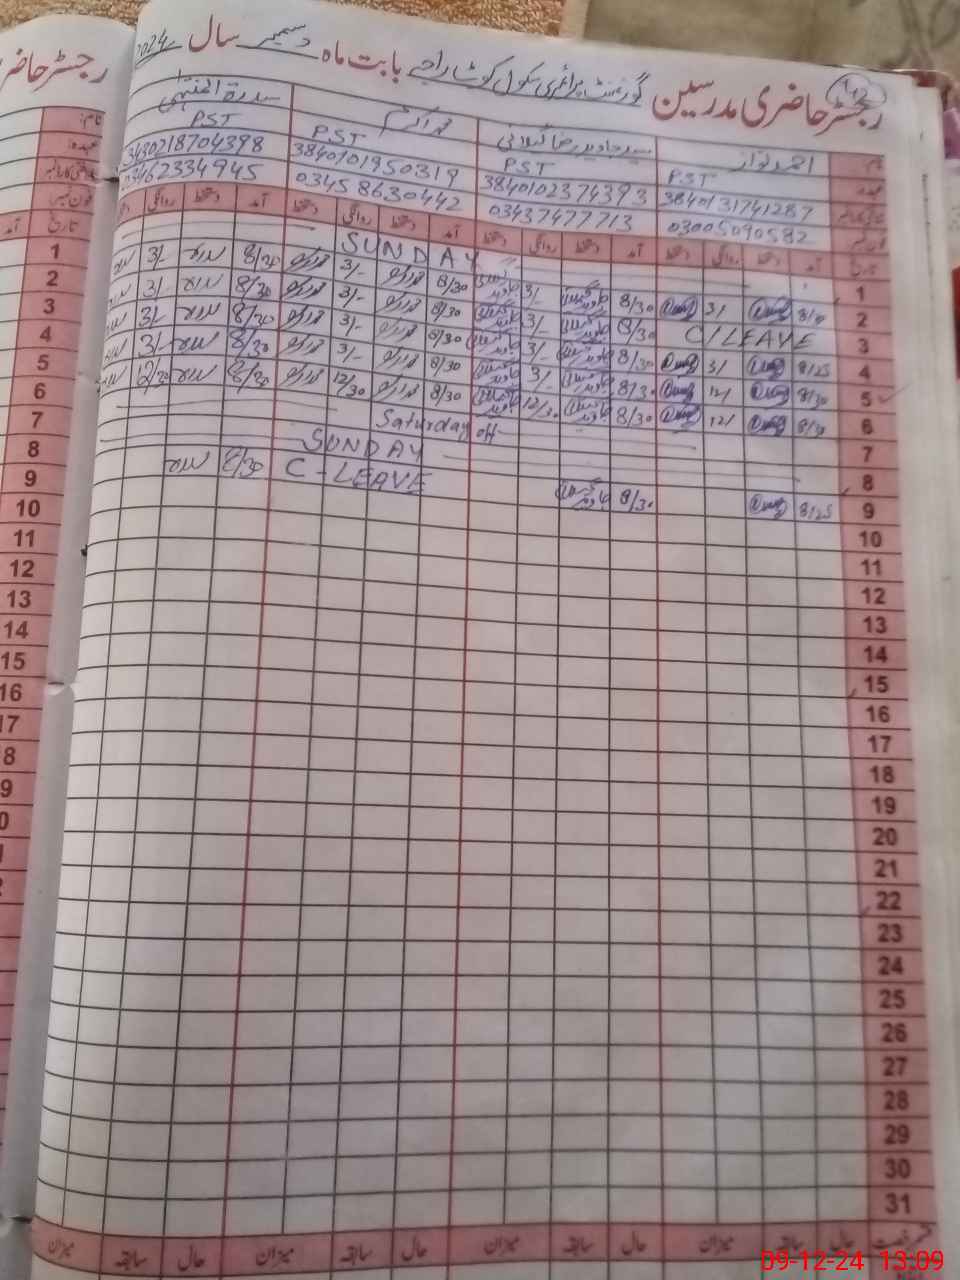 رجسٹر حاضری مدرسین گورنمنٹ پرائمری سکول کوٹ راجے بابت ماہ دسمبر سال 2024
رجسٹر حاضر
نام: احمد نواز سید جاوید رضا گیلانی محمد اکرم سدرۃ المنتہیٰ
عہدہ: PST PST PST PST
شناختی کارڈ نمبر 3840131741287 3840102374393 3840101950319 3430218704398
فون نمبر 03005090582 03437477713 03458630442 03462334945
تاریخ آمد دستخط روانگی دستخط آمد دستخط روانگی دستخط آمد دستخط روانگی دستخط آمد دستخط روانگی دستخط
1 SUNDAY
2 8/30 3/- 8/30 3/- 8/30 3/-
3 C/LEAVE 8/30 3/- 8/30 3/- 8/30 3/-
4 8/25 3/ 8/30 3/- 8/30 3/- 8/30 3/-
5 8/30 12/ 8/30 3/- 8/30 3/- 8/30 3/-
6 8/30 12/ 8/30 12/30 8/30 12/30 8/30 12/30
7 Saturday off
8 SUNDAY
9 8/25 8/30 C-LEAVE 8/30
10
11
12
13
14
15
16
17
18
19
20
21
22
23
24
25
26
27
28
29
30
31
حال سابقہ میزان حال سابقہ میزان حال سابقہ میزان حال سابقہ میزان
09-12-24 13:09